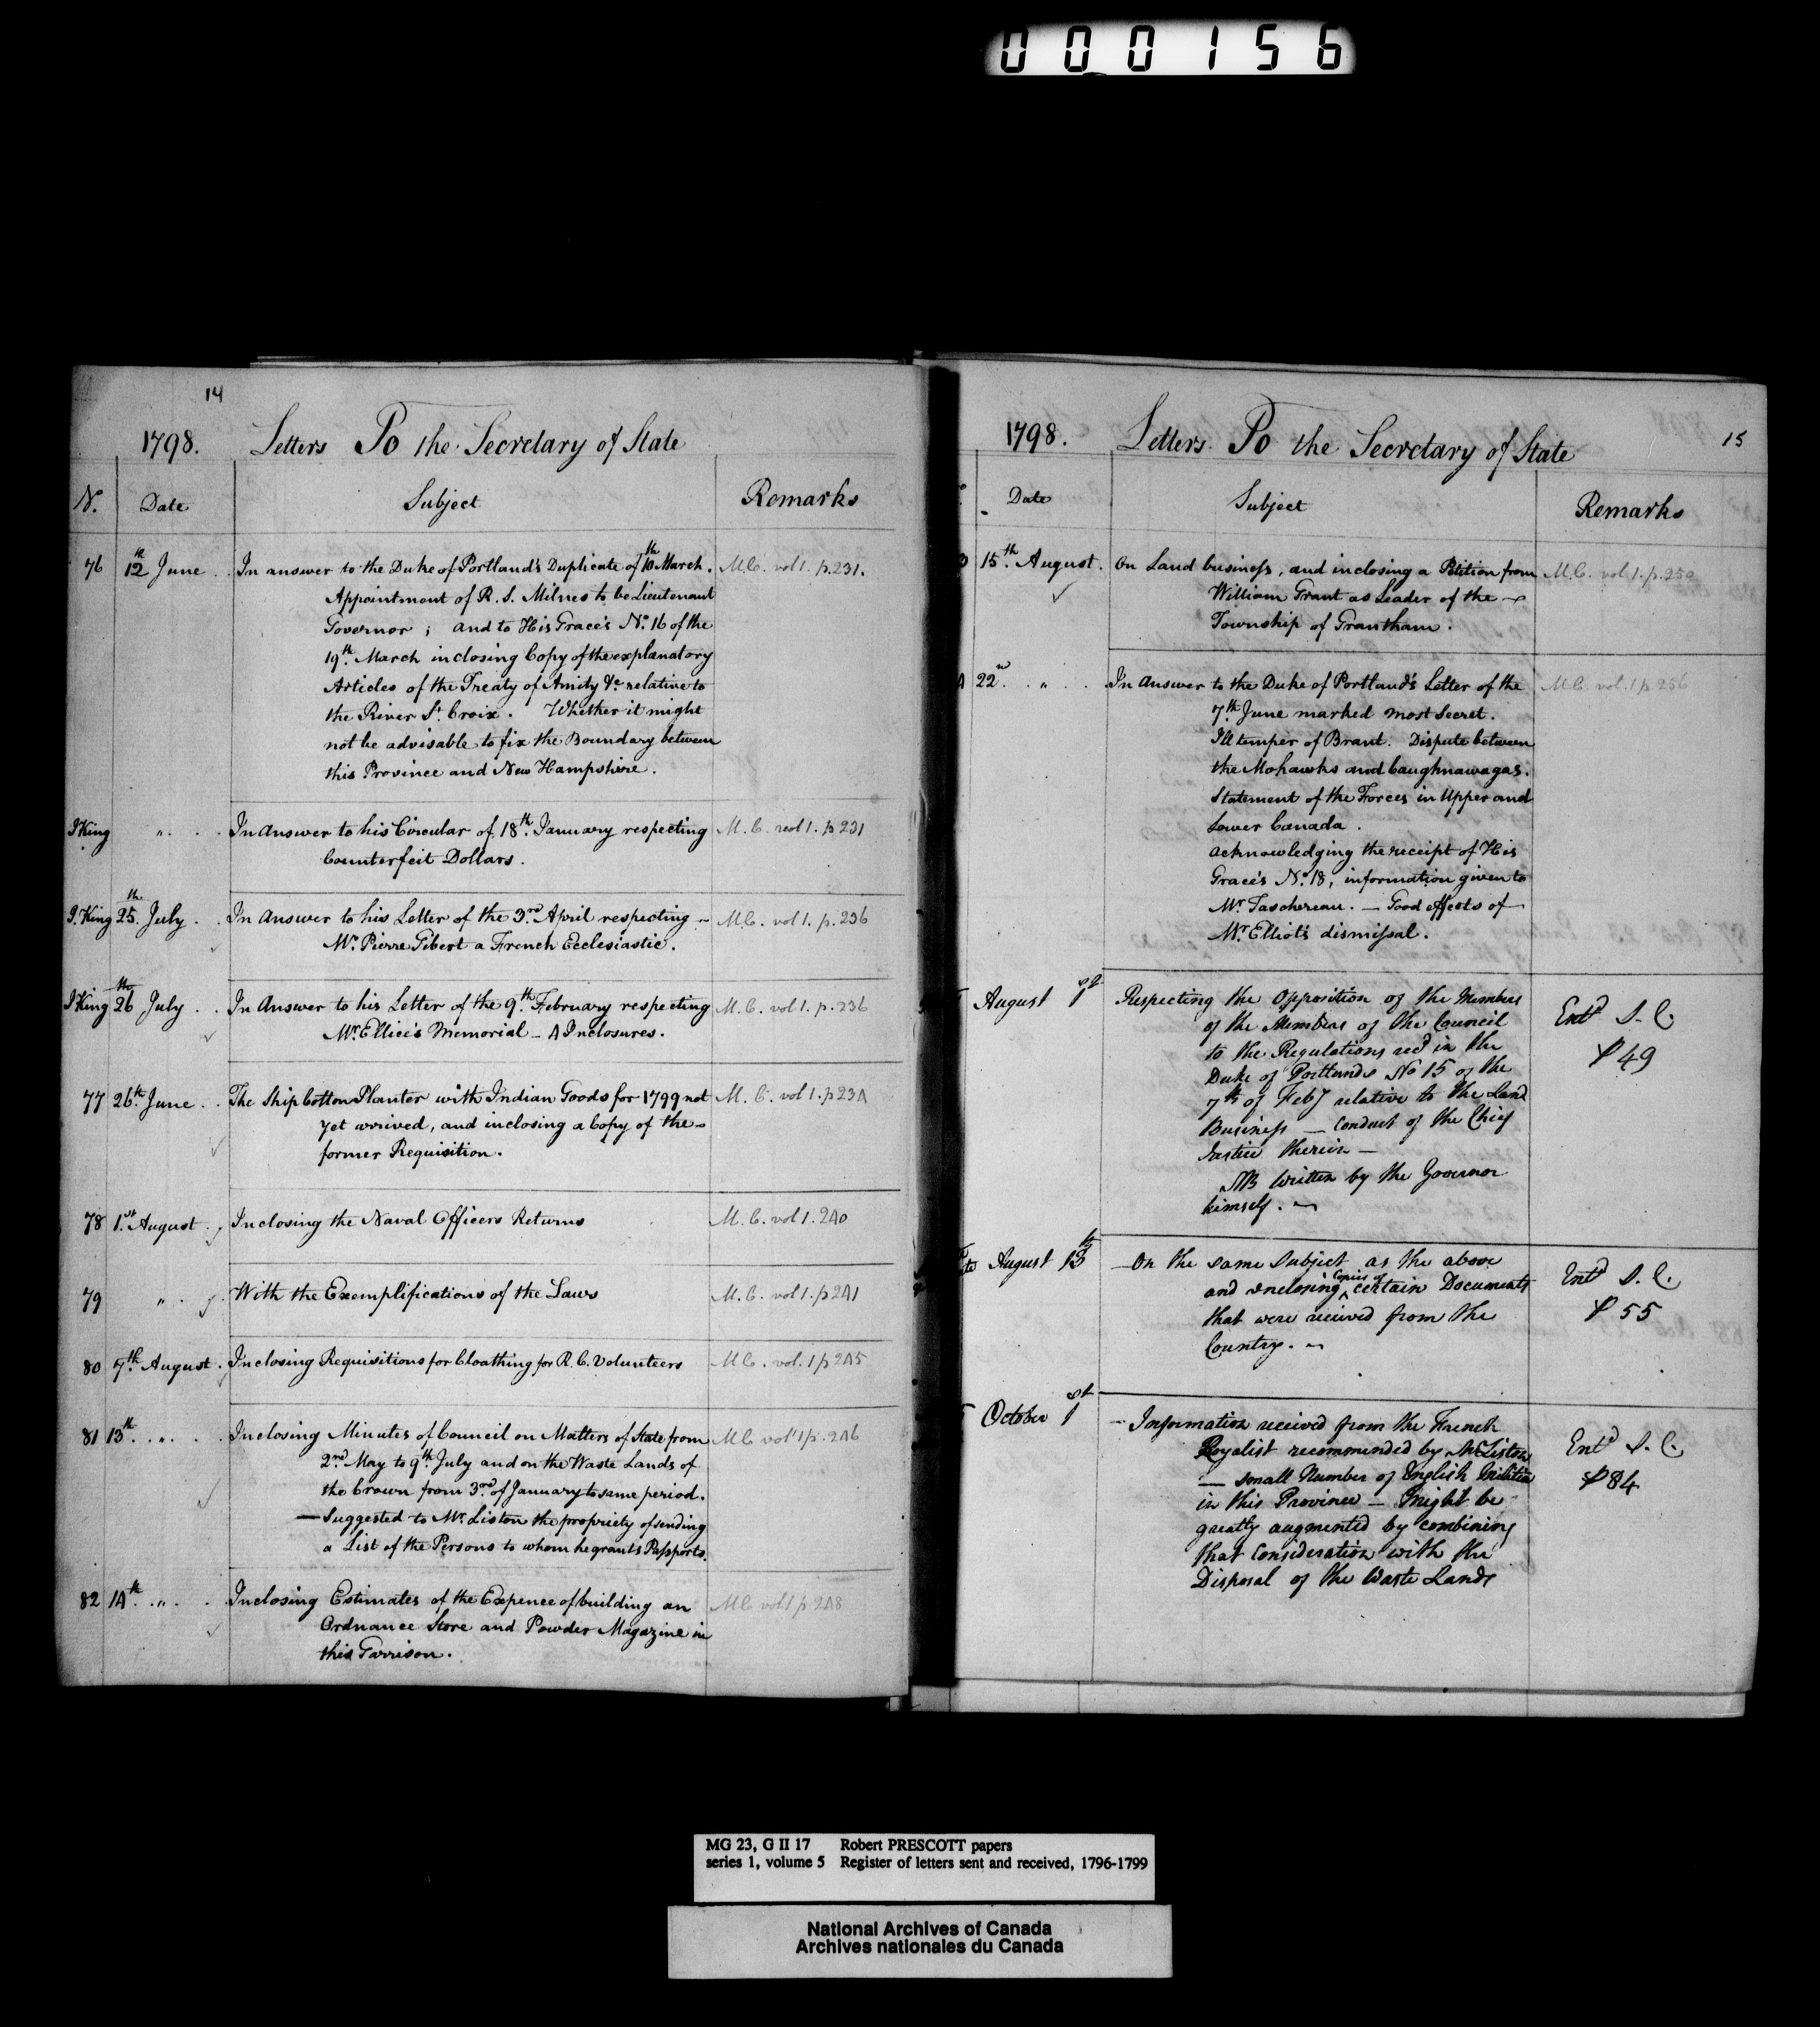 000156
14
1798. Letters To the Secretary of State
No. Date Subject Remarks
76 12th June . In answer to the Duke of Portland's Duplicate of 10th March. M.C. vol 1. p.231.
Appointment of R. S. Milnes to be Lieutenant
Governor ; and to His Grace's No. 16 of the
19th March inclosing Copy of the explanatory
Articles of the Treaty of Amity &c. relative to
the River St. Croix. Whether it might
not be advisable to fix the Boundary between
this Province and New Hampshire.
J King " . . . In answer to his Circular of 18th January respecting M. C. vol 1. p 231
Counterfeit Dollars.
J. King 25th July . . In Answer to his Letter of the 3rd April respecting M.C. vol 1. p. 236
Mr. Pierre Gibert a French Ecclesiastic.
J King 26th July . . In Answer to his Letter of the 9th February respecting M. C. vol 1. p. 236
Mr. Ellice's Memorial _ 4 Inclosures.
77 26th June . . The Ship Cotton Planter with Indian Goods for 1799 not M. C. vol 1. p 234
yet arrived, and inclosing a Copy of the
former Requisition.
78 1.st August . Inclosing the Naval Officers Returns M. C. vol 1. 240
79 " . . With the Exemplifications of the Laws M. C. vol 1. p 241
80 7th August . Inclosing Requisitions for Cloathing for R. C. Volunteers M C. vol. 1 p 245
81 13th . " . . Inclosing Minutes of Council on Matters of State from M C vol 1 p. 246
2nd May to 9th July and on the Waste Lands of
the Crown from 3rd of January to same period.
— Suggested to Mr. Liston the propriety of sending
a List of the Persons to whom he grants Passports.
82 14th . " . . Inclosing Estimates of the Expence of building an M C vol 1 p 248
Ordnance Store and Powder Magazine in
this Garrison.
1798. Letters To the Secretary of State 15
Date Subject Remarks
15th August . On Land business, and inclosing a Petition from M.C. vol 1. p. 250
William Grant as Leader of the
Township of Grantham.
22n . " . . In Answer to the Duke of Portland's Letter of the M C. vol. 1 p 256
7th June marked most Secret.
Ill temper of Brant. Dispute between
the Mohawks and Caughnawagas.
Statement of the Forces in Upper and
Lower Canada.
Acknowledging the receipt of His
Grace's No. 18, information given to
Mr. Taschereau. — Good effects of
Mr. Elliot's dismissal.
August 1st Respecting the Opposition of the Members Entd S. C.
of the Members of the Council
to the Regulations recd in the p 49
Duke of Portlands No 15 of the
7th of Feby relative to the Land
Business — Conduct of the Chief
Justice therein —
NB written by the Governor
himself.
August 13th — On the same Subject as the above Entd S. C.
and enclosing Copies of certain Documents
that were received from the p 55
Country.
October 1st — Information received from the French Entd S. C.
Royalist recommended by Mr Liston
— small Number of English Militia p 84
in this Province — might be
greatly augmented by combining
that Consideration with the
Disposal of the Waste Lands
MG 23, G II 17 Robert PRESCOTT papers
series 1, volume 5 Register of letters sent and received, 1796-1799
National Archives of Canada
Archives nationales du Canada